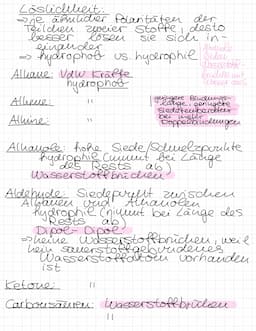 Löslichkeit:
→ je ähnlicher Polaritäten der
Teilchen zweier Stoffe, desto
besser lösen sie sich in-
einander
→ hydrophob vs. hydrophil
Alkane: VdW Kräfte
hydrophob
Alkene: "
Alkine: "
geringere Bindungs-
länge, geringere
Siedetemperaturen
bei mehr
Doppelbindungen
Alkanole: hohe Siede/Schmelzpunkte
hydrophil (nimmt bei Länge
des Rests ab)
Wasserstoffbrücken
Aldehyde: Siedepunkt zwischen
Alkanen und Alkanolen
hydrophil (nimmt bei Länge des
Rests ab)
Dipol-Dipol
→ keine Wasserstoffbrücken, weil
kein sauerstoffgebundenes
Wasserstoffatom vorhanden
ist
Ketone: "
Carbonsäuren: Wasserstoffbrücken
"